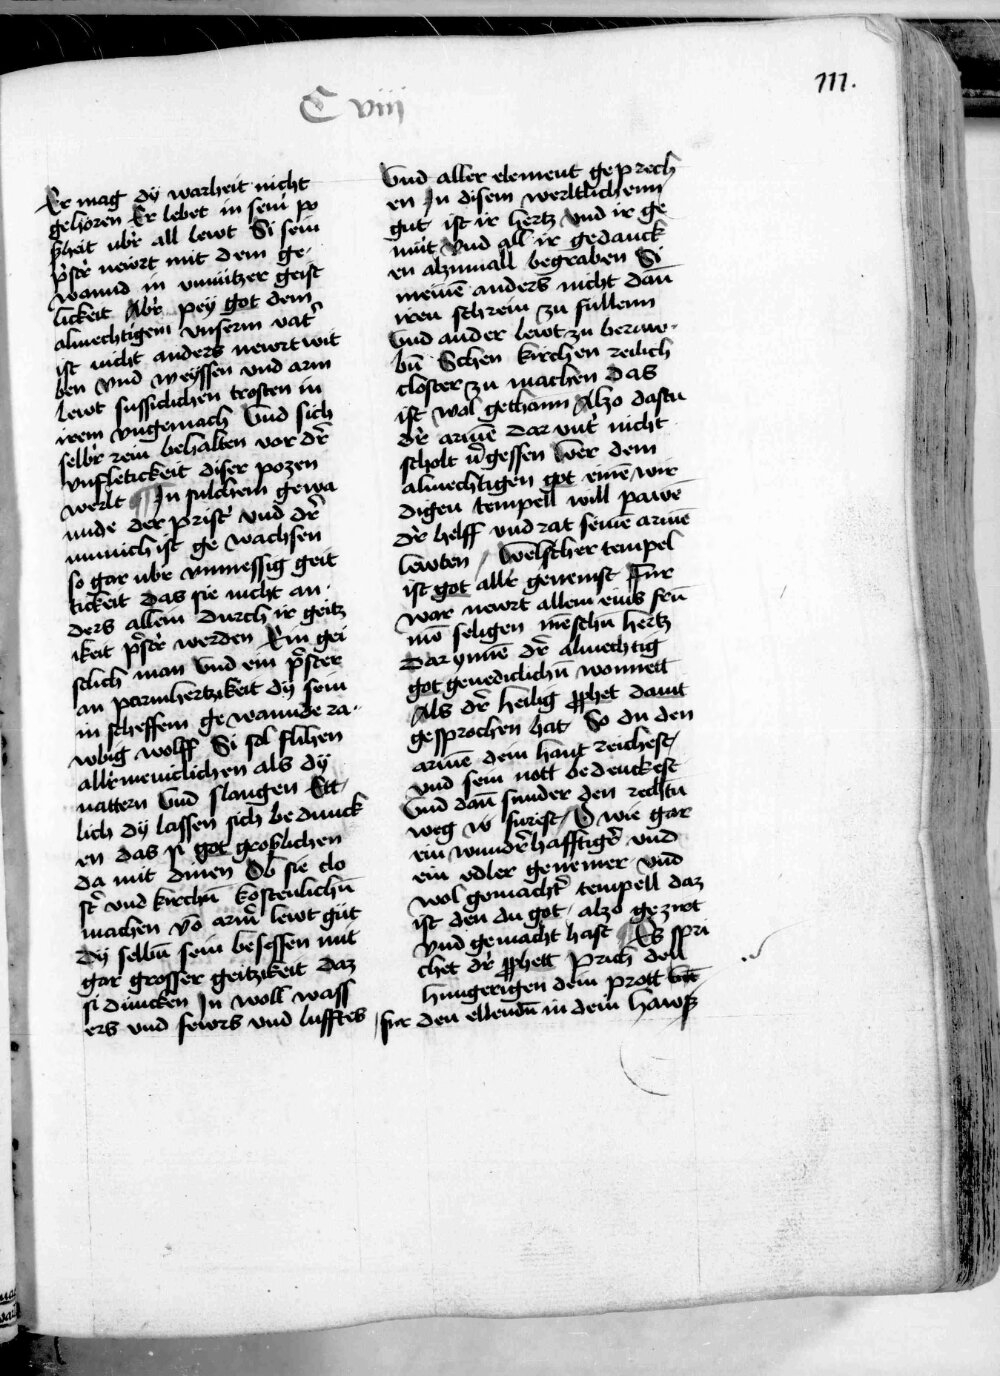 111.
C viij
Er mag dÿ warheit nicht
gehoren Er lebet in sein po
ßheit ubˀr all lewt Si sein
pˀstˀr newrt mit dem ge
wannd in unnützer geist
lickeit Abˀr peÿ got dem
almechtigem unserm vatˀ
ist nicht anders newrt wit
ben und weÿssen und arm
lewt sussiclichen trosten in
irem ungemach Und sich
selbˀr rein behalten vor dˀr
unfletickeit diser pozen
werlt ¶ In sulchem gewa
nnde der pristˀ und dˀr
munich ist ge wachsen
so gar ubˀr unmessig geit
tickeit das sie nicht an
ders allein durch ir geitz
ikeit pˀstˀr werden Ein gei
stlich man und ein pˀster
an parmhertzikeit dÿ sein
in scheffem gewannde ra-
wbig wolff Si sol flihen
allˀrmeniclichen als dÿ
nattern Und slangen Ett
lich dÿ lassen sich bedunck
en das si got groblichen
da mit dinen Ob sie clo
stˀ und kirchn̄ kostenlichn̄
machen vō armˀ lewt güt
dÿ selbn̄ sein besessen mit
gar grosser geitzikeit daz
si duncken In woll wass
ers und fewrs und lufftes
Und aller element geprech
en In disem werltlichenn
gut ist ir hertz und ir ge
müt Und all ir gedanck
en alzumall begraben Si
meinē anders nicht dan̄
iren schrein zu fullenn
Und ander lewt zu beraw-
bn̄ Schen kirchen reilich
closter zu machen das
ist wol gethann Alzo dastu
dˀr armē dar untˀ nicht
scholt v̄gessen Wer dem
almechtigen got einē wir
digen tempell will pawē
dˀr helff und rat seinē armē
lewten / Welscher tempel
ist got allˀr genemst Fur
war newrt allein eins frū
mē seligen mēschn̄ hertz
Dar ynnē dˀr almechtig
got genediclichn̄ wonnett
Als dˀr heilig ꝓphet davit
gesprochen hat So du den
armē dein hant reichest /
und sein nott bedenckest
Und dan̄ sunder den rechtn̄
weg in furest / O wie gar
ein wundˀrhafftigˀr und
ein edler genemer und
wol gemachtˀ tempell daz
ist den du got / alzo geziret
und gemacht hast ¶ Es spri
chet dˀr ꝓphett Prich dem
hungerigen dein prott
fur den ellendn̄ in dein hawß